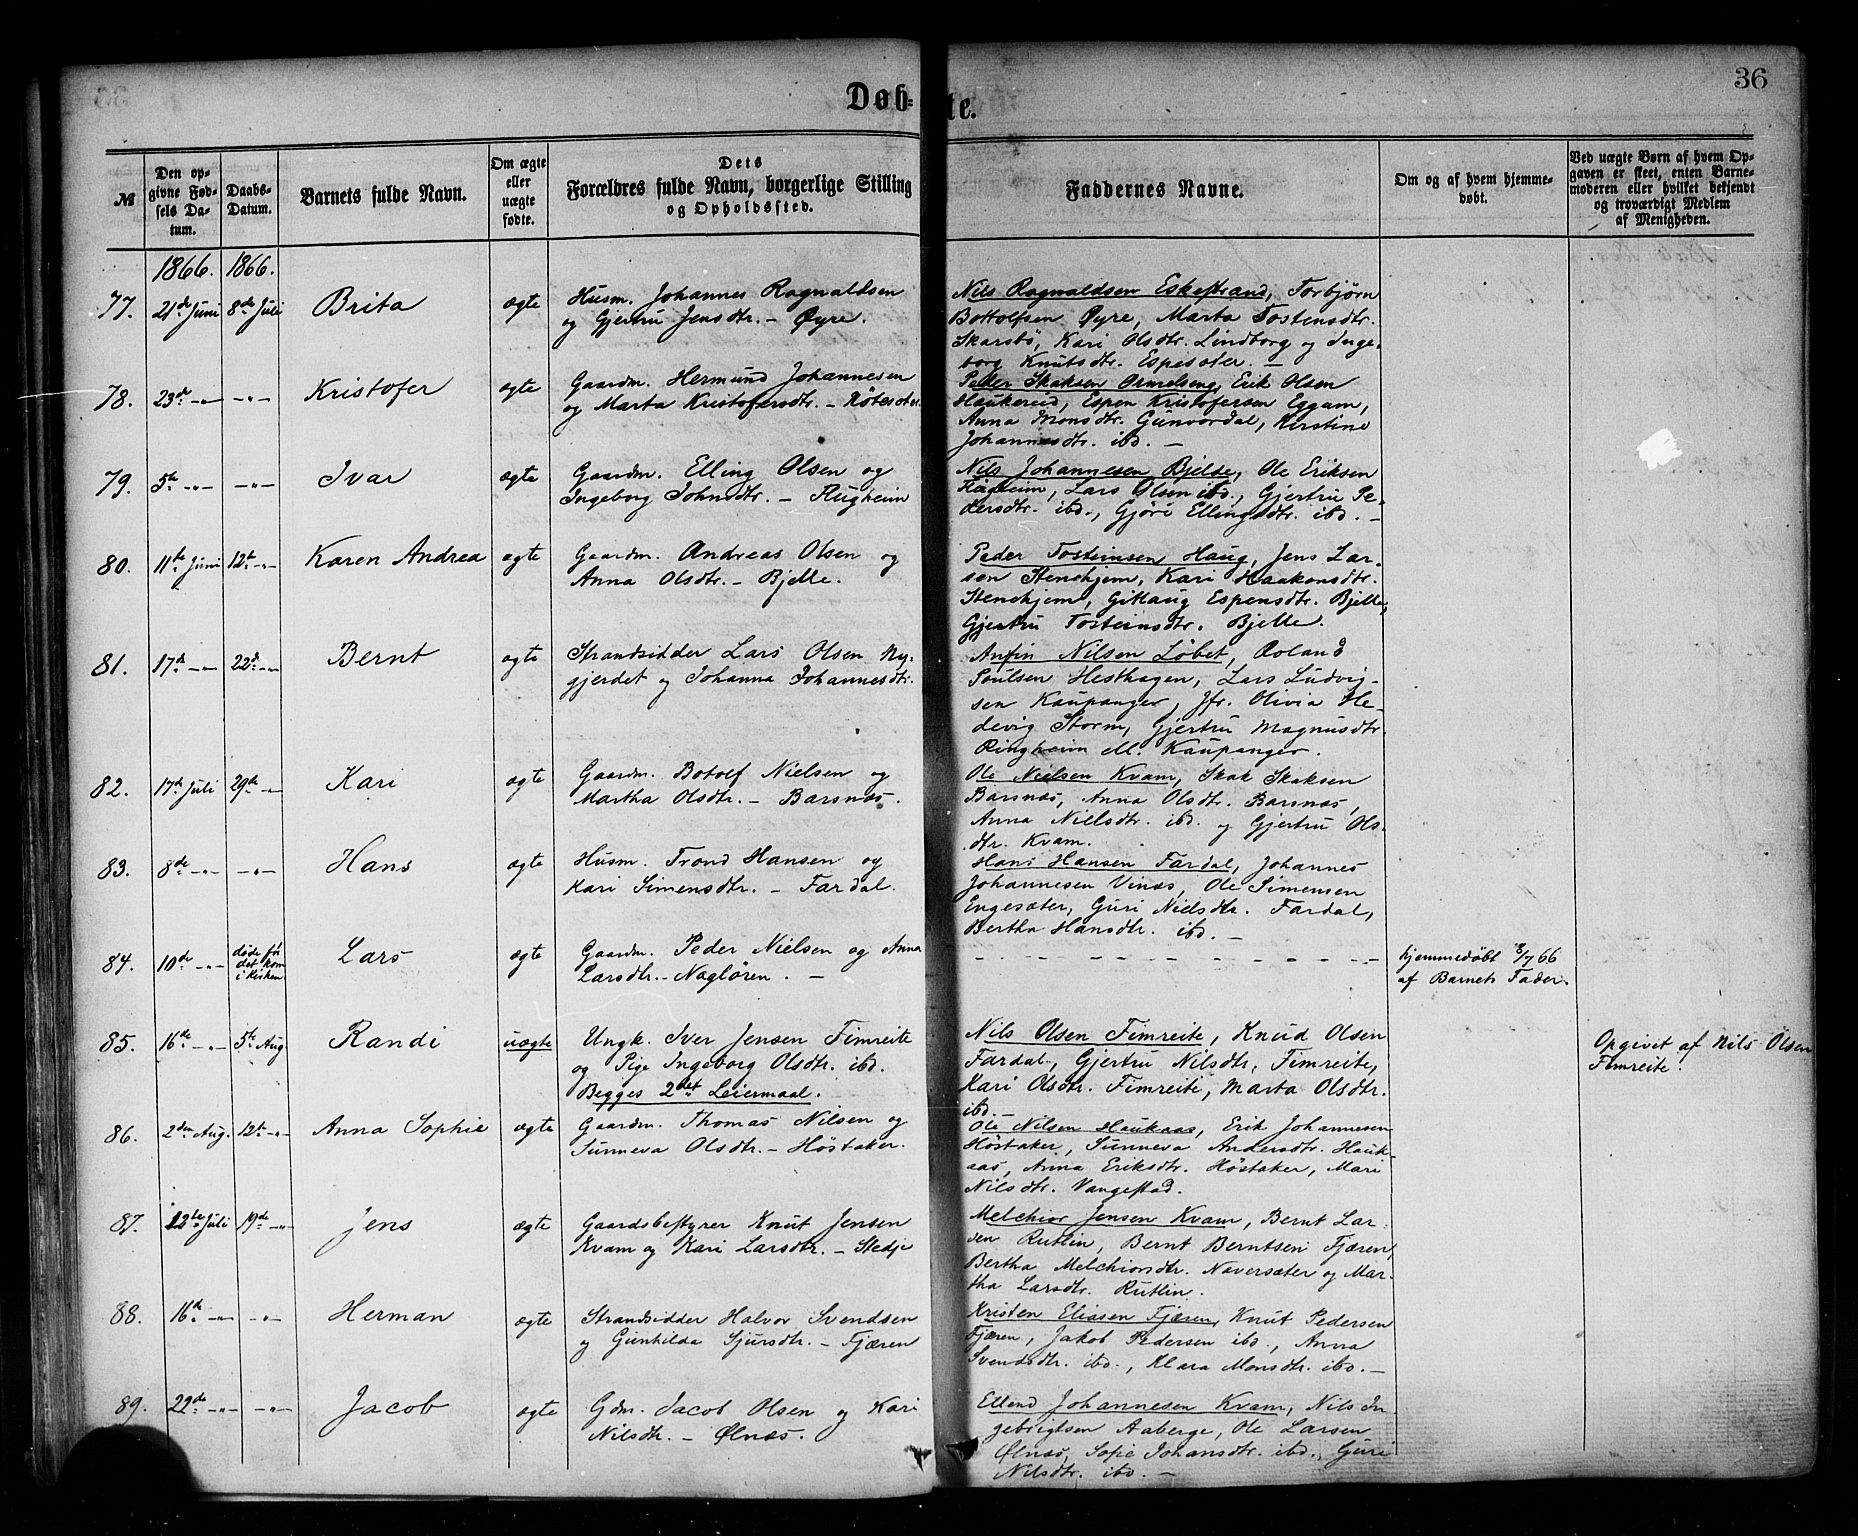 36
Døb-te.
№
Den opgivne Fødsels Datum.
Daabs-Datum.
Barnets fulde Navn.
Om ægte eller uægte fødte.
Dets Forældres fulde Navn, borgerlige Stilling og Opholdssted.
Faddernes Navne.
Om og af hvem hjemmedøbt.
Ved uægte Børn af hvem Opgaven er skeet, enten Barnemoderen eller hvilket bekjendt og troværdigt Medlem af Menigheden.
1866. 1866.
77. 21de Juni 8de Juli Brita ægte Husm. Johannes Ragnaldsen
og Gjertru Jensdtr. – Øyre.
Nils Ragnaldsen Eskestrand, Torbjørn
Bottolfsen Øyre, Marta Tostensdtr.
Skarsbø, Kari Olsdtr. Lindborg og Inge-
borg Knutsdtr. Espesæter. –
78. 23de –"– –"– Kristofer ægte Gaardm. Hermund Johannesen
og Marta Kristofersdtr. –
Peder Skaksen Ormelseng, Erik Olsen
Haukereid, Espen Kristofersen Eggum,
Anna Monsdtr. Gunvordal, Kerstine
Johannesdtr. ibd. –
79. 5te –"– –"– Ivar ægte Gaardm. Elling Olsen og
Ingeborg Johnsdtr. – Flugheim
Nils Johannesen Bjelde, Ole Eriksen
Flugheim, Lars Olsen ibd., Gjertru Pe-
dersdtr. ibd., Gjøri Ellingsdtr. ibd. –
80. 11te Juni 12te –"– Karen Andrea ægte Gaardm. Andreas Olsen og
Anna Olsdtr. – Bjelle.
Peder Tosteinsen Haug, Jens Lar-
sen Stenehjem, Kari Haakonsdtr.
Stenehjem, Gitlaug Espensdtr. Bjelle,
Gjertru Tosteinsdtr. Bjelle.
81. 17de –"– 22de –"– Bernt ægte Strandsidder Lars Olsen Ny-
gjerdet og Johanna Johannesdtr.
Anfin Nilsen Løbet, Roland
Poulsen Hesthagen, Lars Ludvig-
sen Kaupanger, Jfr. Olivia He-
devig Storm, Gjertru Magnusdtr.
Ringheim M. Kaupanger.
82. 17de Juli 29de –"– Kari ægte Gaardm. Botolf Nielsen og
Martha Olsdtr. – Barsnæs.
Ole Nielsen Kvam, Skak Skaksen
Barsnæs, Anna Olsdtr. Barsnæs,
Anna Nielsdtr. ibd. og Gjertru Ols-
dtr. Kvam.
83. 8de –"– –"– Hans ægte Husm. Trond Hansen og
Kari Simensdtr. – Fardal.
Hans Hansen Fardal, Johannes
Johannesen Vinæs, Ole Simensen
Engesæter, Guri Nielsdtr. Fardal,
Bertha Hansdtr. ibd. –
84. 10de –"– døde før
det kom
i Kirken Lars ægte Gaardm. Peder Nielsen og Anna
Larsdtr. – Nagløren. –
– – – – – – – – – –
hjemmedøbt 13/7 66
af Barnets Fader.
85. 16de –"– 5te Aug. Randi uægte Ungk. Iver Jensen Fimreite
og Pige Ingeborg Olsdtr. ibd.
Begges 2det Leiermaal.
Nils Olsen Fimreite, Knud Olsen
Fardal, Gjertru Nilsdtr. Fimreite,
Kari Olsdtr. Fimreite, Marta Olsdtr.
ibd. –
Opgivet af Nils Olsen
Fimreite.
86. 2den Aug. 12te –"– Anna Sophie ægte Gaardm. Thomas Nilsen og
Sunneva Olsdtr. – Høstaker.
Ole Nilsen Haukaas, Erik Johannesen
Høstaker, Sunneva Andersdtr. Hauk-
aas, Anna Eriksdtr. Høstaker, Mari
Nilsdtr. Vangestad.
87. 12te Juli 19de –"– Jens ægte Gaardsbestyrer Knut Jensen
Kvam og Kari Larsdtr. – Stedje
Melchior Jensen Kvam, Bernt Lar-
sen Rutlin, Bernt Berntsen Fjæren,
Bertha Melchiorsdtr. Naversæter og Mar-
tha Larsdtr. Rutlin.
88. 16de –"– –"– Herman ægte Strandsidder Halvor Svendsen
og Gunhilda Sjursdtr. – Fjæren
Kristen Eliasen Fjæren, Knut Pedersen
Fjæren, Jakob Pedersen ibd., Anna
Svendsdtr. ibd., Klara Monsdtr. ibd. –
89. 22de –"– –"– Jacob ægte Gdm. Jacob Olsen og Kari
Nilsdtr. – Ølnæs.
Ellend Johannesen Kvam, Nils In-
gebrigtsen Aaberge, Ole Larsen
Ølnæs, Sofie Johansdtr. ibd., Guri
Nilsdtr. ibd. –